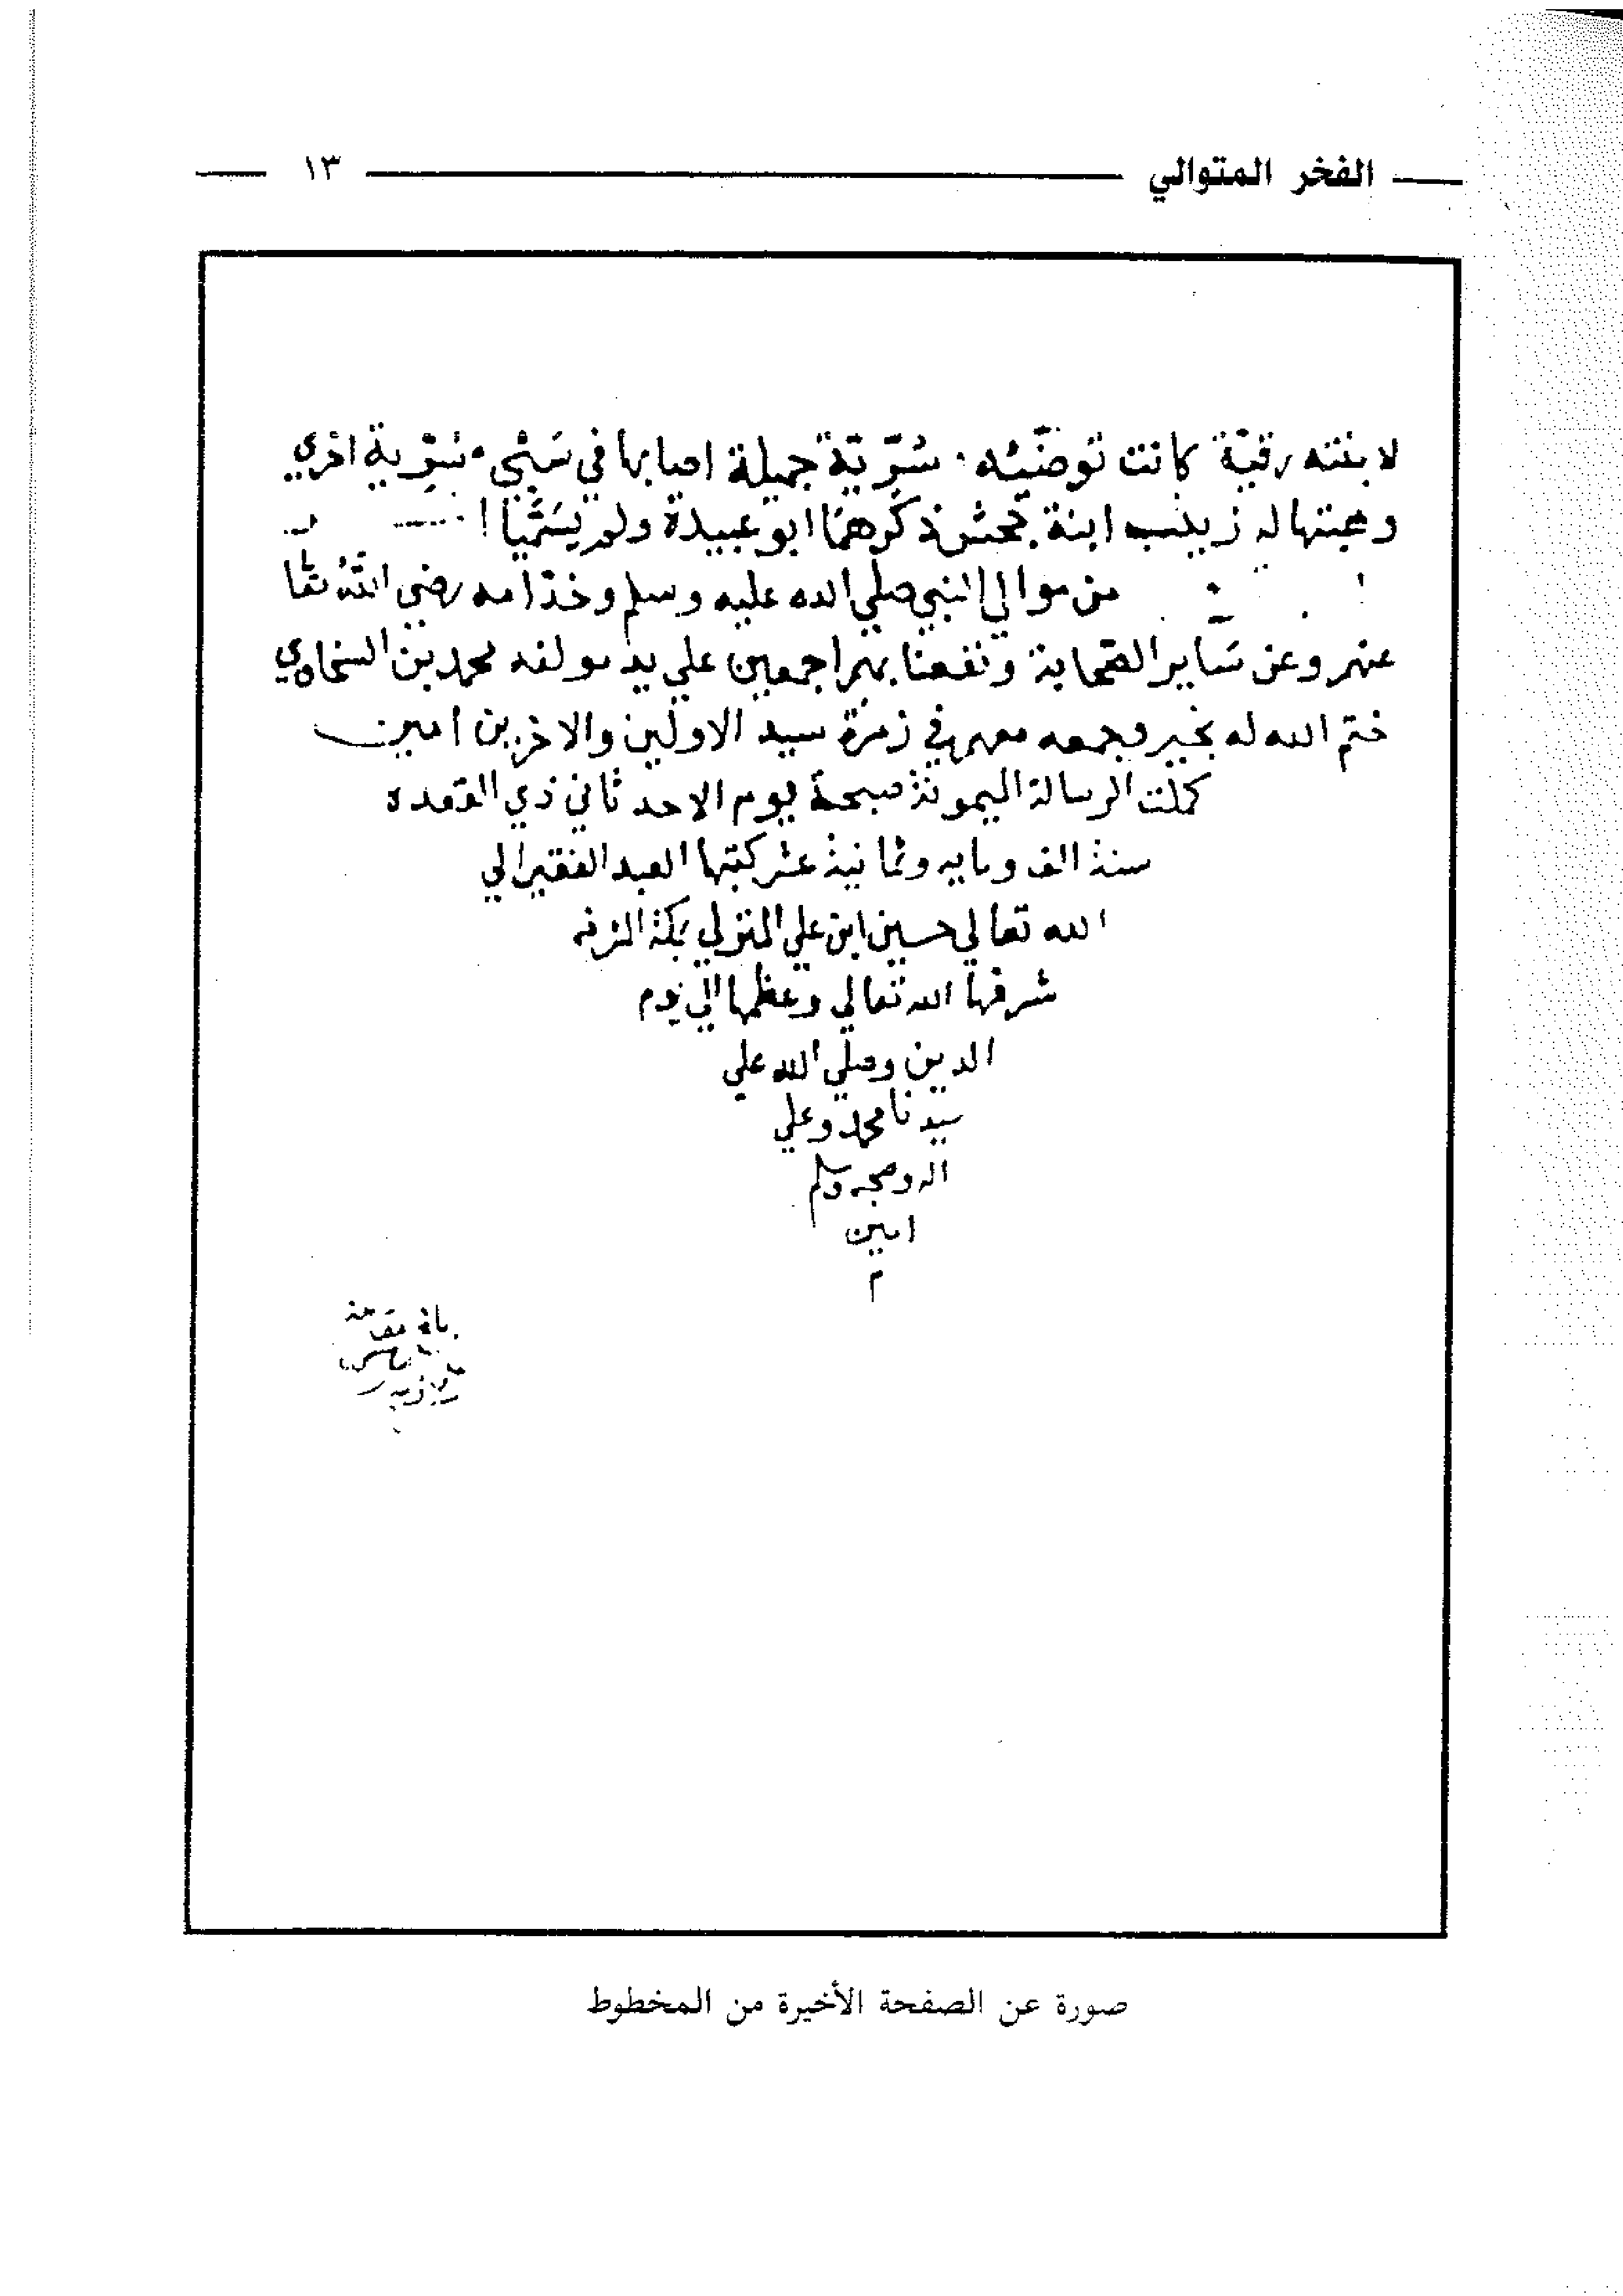 الفخر المتوالي ١٣
لابنته رقية كانت توضئه. سُرّيّة جميلة اصابها في سَبْي. سُرّية اخري
وهبتها له زينب ابنة جحش ذكرهما ابو عبيدة ولم يسَمّيا
من موالي النبي صلي الله عليه وسلم وخدّامه رضي الله تعا
عنهم وعن سَاير الصّحابة ونفعنا بهم اجمعين علي يد مولفه محمد بن السخاوي
ختم الله له بخير وجمعه معهم في زمرة سيد الاولين والاخرين امين
كملت الرسالة الميمونة صبحة يوم الاحد ثاني ذي القعده
سنة الف ومايه وثمانية عشر كتبها العبد الفقير الي
الله تعالي حسين ابن علي المنزلي بمكة المشرفه
شرفها الله تعالي وعظمها الي يوم
الدين وصلي الله علي
سيدنا محمد وعلي
اله وصحبه وسلم
امين
م
صورة عن الصفحة الأخيرة من المخطوط